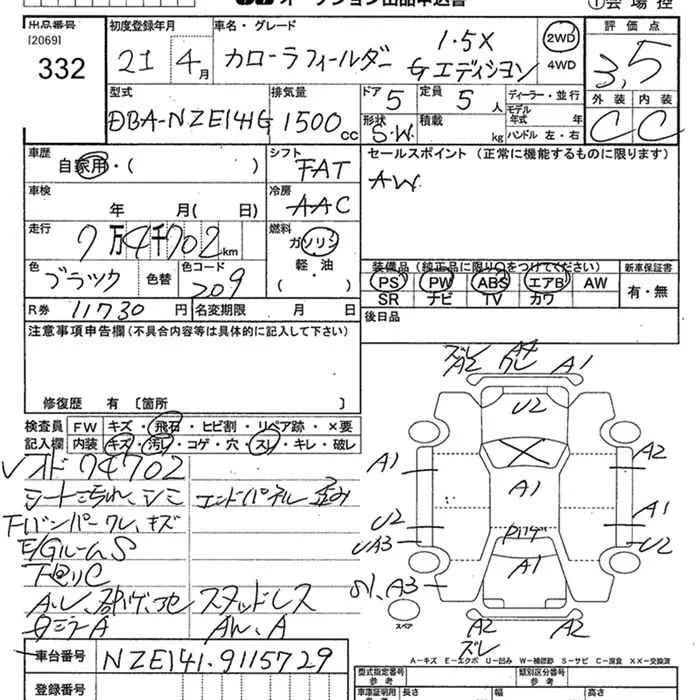 オークション出品申込書
①会場控
出品番号
[2069]
332
初度登録年月
21 4月
車名・グレード
カローラフィールダー 1.5X Gエディション
2WD
4WD
評価点
3.5
外装 内装
C C
型式
DBA-NZE141G
排気量
1500cc
ドア 5
定員 5人
形状 S.W.
積載 kg
ディーラー・並行
モデル年式 年
ハンドル 左・右
車歴
自家用・( )
シフト
FAT
車検
年 月( 日)
冷房
AAC
走行
7万4千702km
燃料
ガソリン
軽・油
( ・ )
色
ブラック
色替
色コード
209
R券 11730円
名変期限 月 日
セールスポイント(正常に機能するものに限ります)
AW
装備品(純正品に限り○をつけてください)
PS PW ABS エアB AW
SR ナビ TV カワ
新車保証書
有・無
後日品
注意事項申告欄(不具合内容等は具体的に記入して下さい)
修復歴 有〔箇所 〕
検査員記入欄
FW キズ・飛石・ヒビ割・リペア跡・×要
内装 キズ・汚レ・コゲ・穴・スレ・キレ・破レ
74702
シートこすれ、シミ
エンドパネル 歪み
Fバンパーワレ、キズ
E/GルームS
下廻りC
スタッドレス
AW、A
ズレ
A2
A4
ワレ
A1
U2
A1
A2
A1
A1
U2
UA3
U2
A1
A3
スペア
A2
A2
ズレ
A-キズ E-エクボ U-凹み W-補修跡 S-サビ C-腐食 X X-交換済
車台番号
NZE141-9115729
登録番号
型式指定番号
参考
類別区分番号
参考
車庫証明用
長さ
幅
高さ